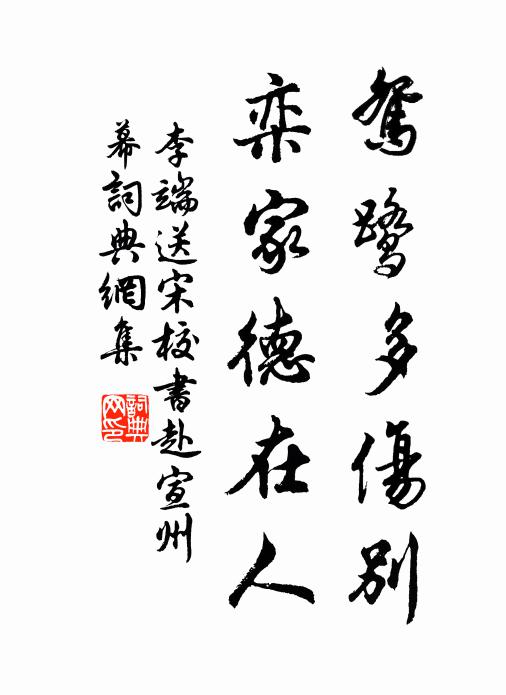 鴛鷺多傷別
栾家德在人
李端送宋校書赴宣州
幕詞典網集
詞典
网印